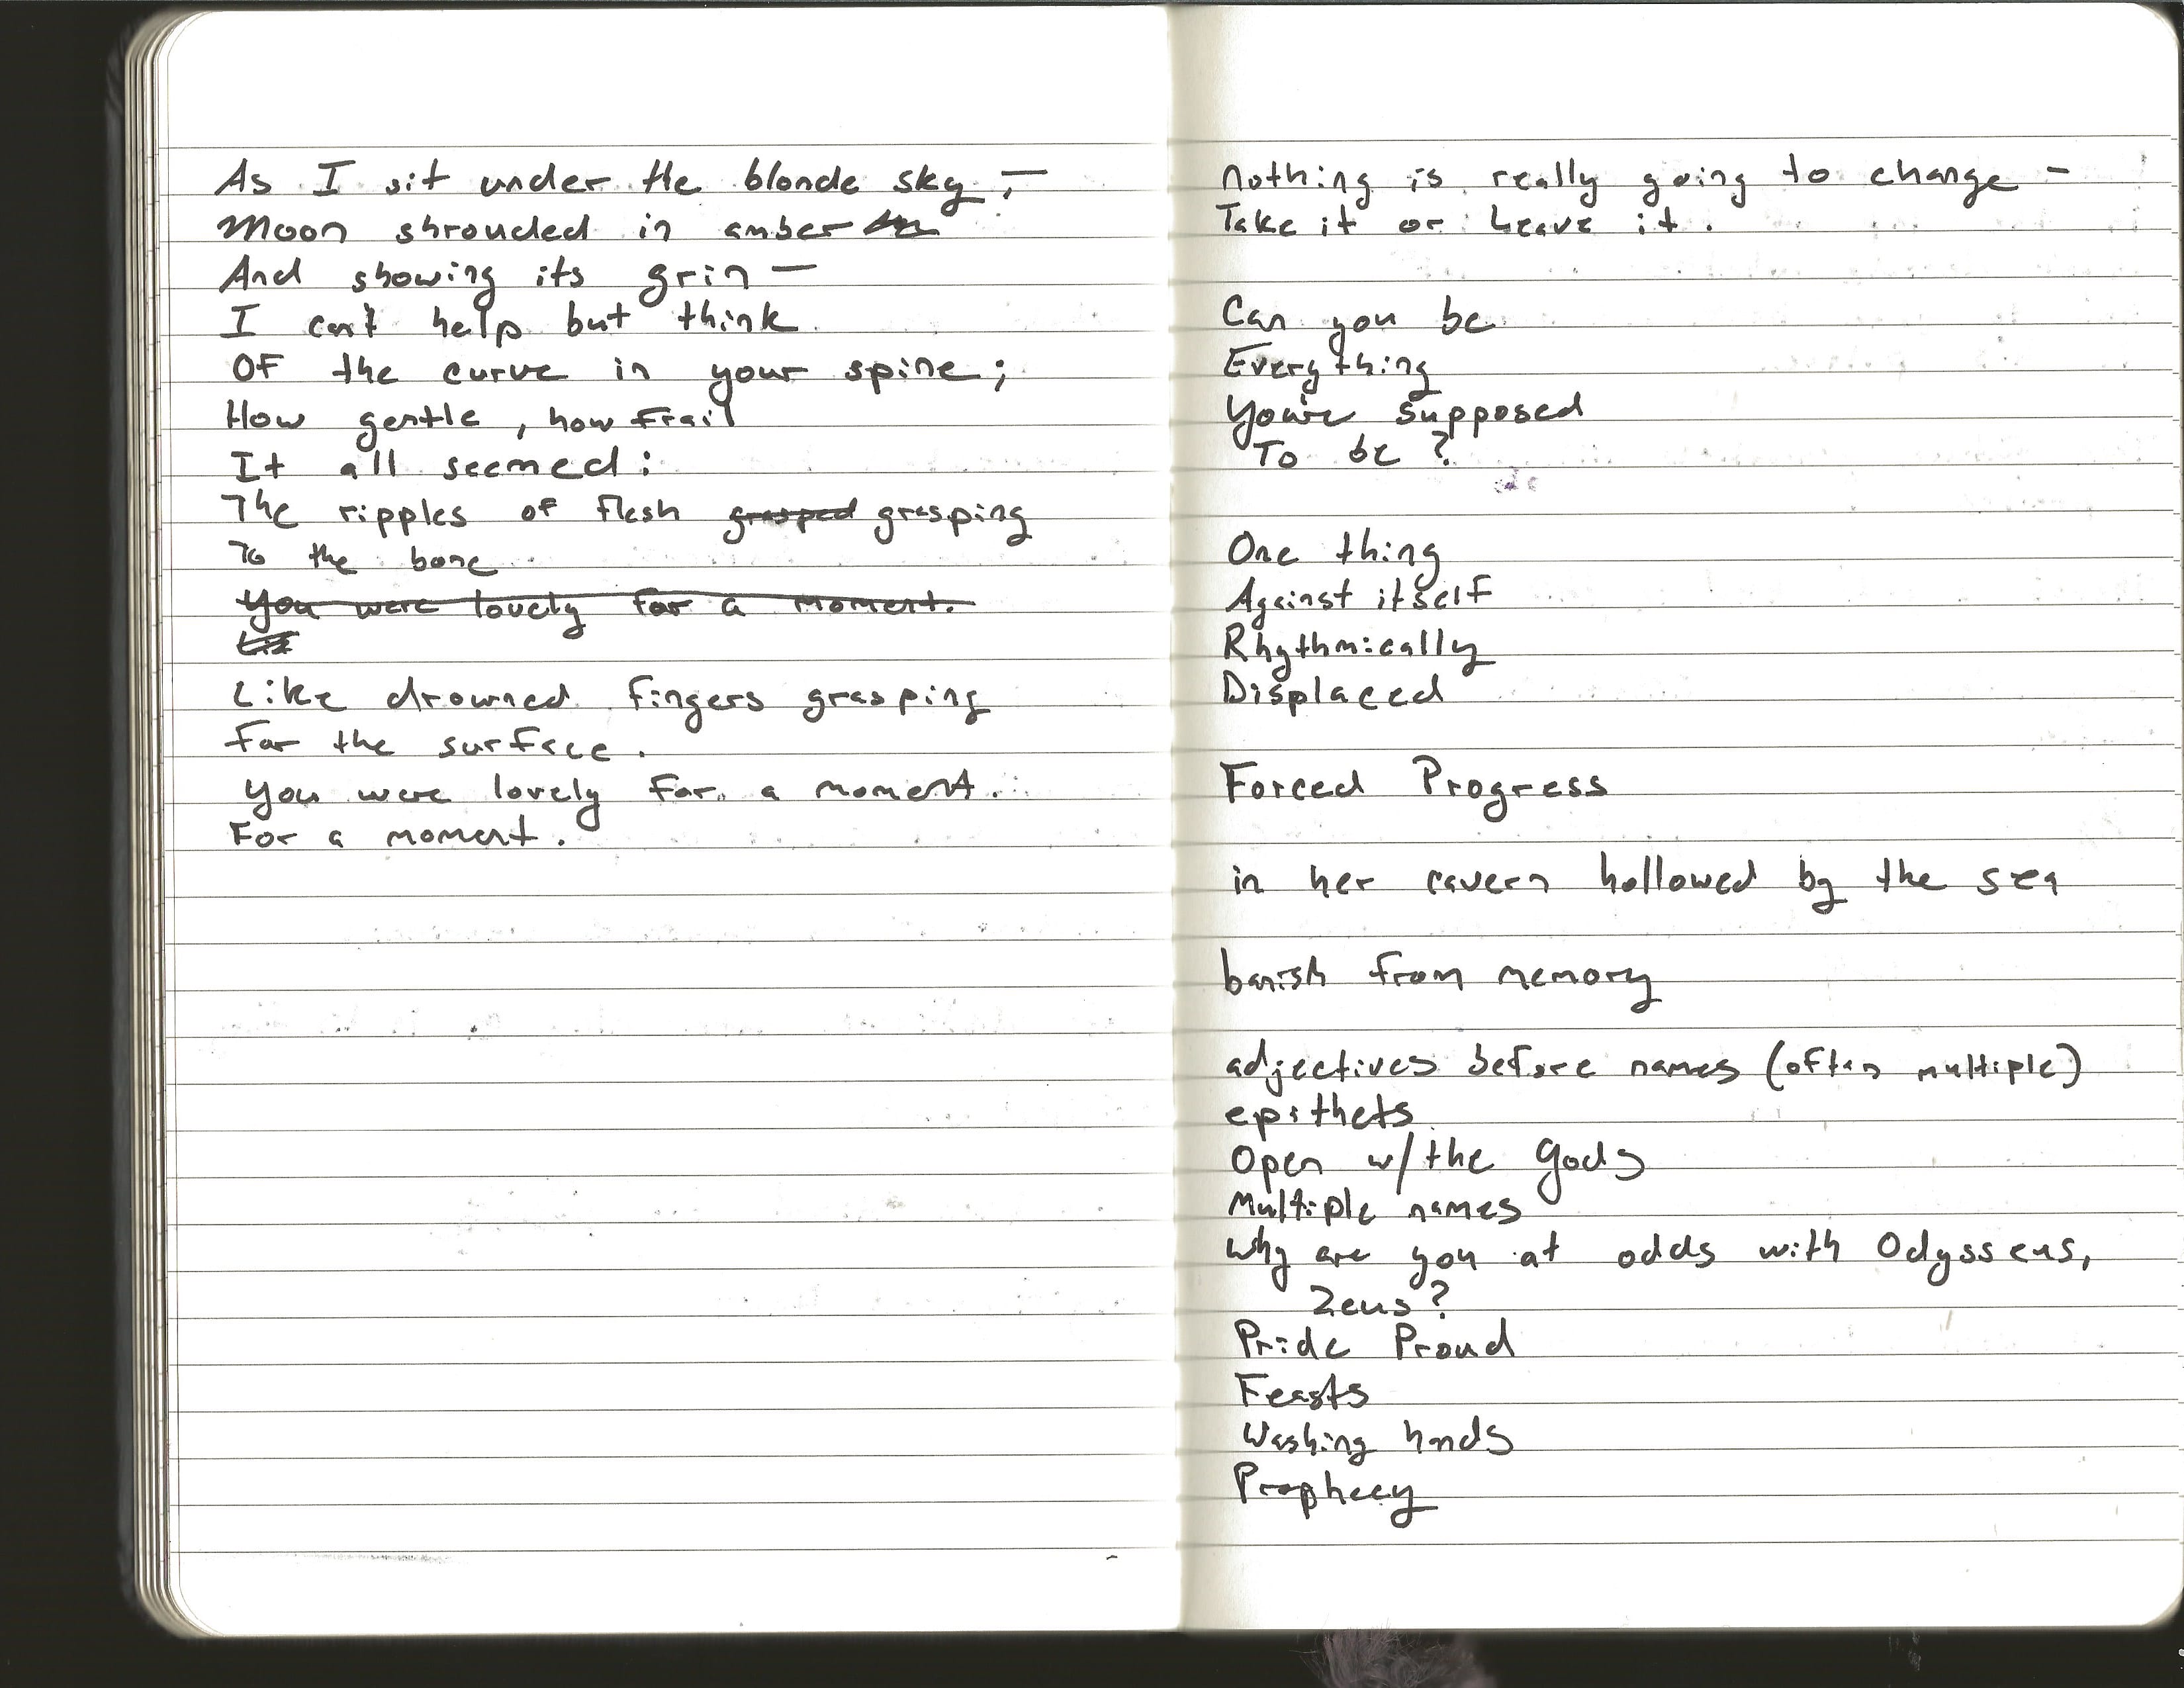 As I sit under the blonde sky, —
Moon shrouded in amber
And showing its grin —
I can't help but think
Of the curve in your spine;
How gentle, how frail
It all seemed:
The ripples of flesh grasped grasping
To the bone
You were lovely for a moment.
Like drowned fingers grasping
For the surface.
You were lovely for a moment.
For a moment.
Nothing is really going to change —
Take it or Leave it.
Can you be
Everything
You're supposed
To be?
One thing
Against itself
Rhythmically
Displaced
Forced Progress
in her cavern hollowed by the sea
banish from memory
adjectives before names (often multiple)
epithets
Open w/the gods
Multiple names
Why are you at odds with Odysseus,
Zeus?
Pride Proud
Feasts
Washing hands
Prophecy